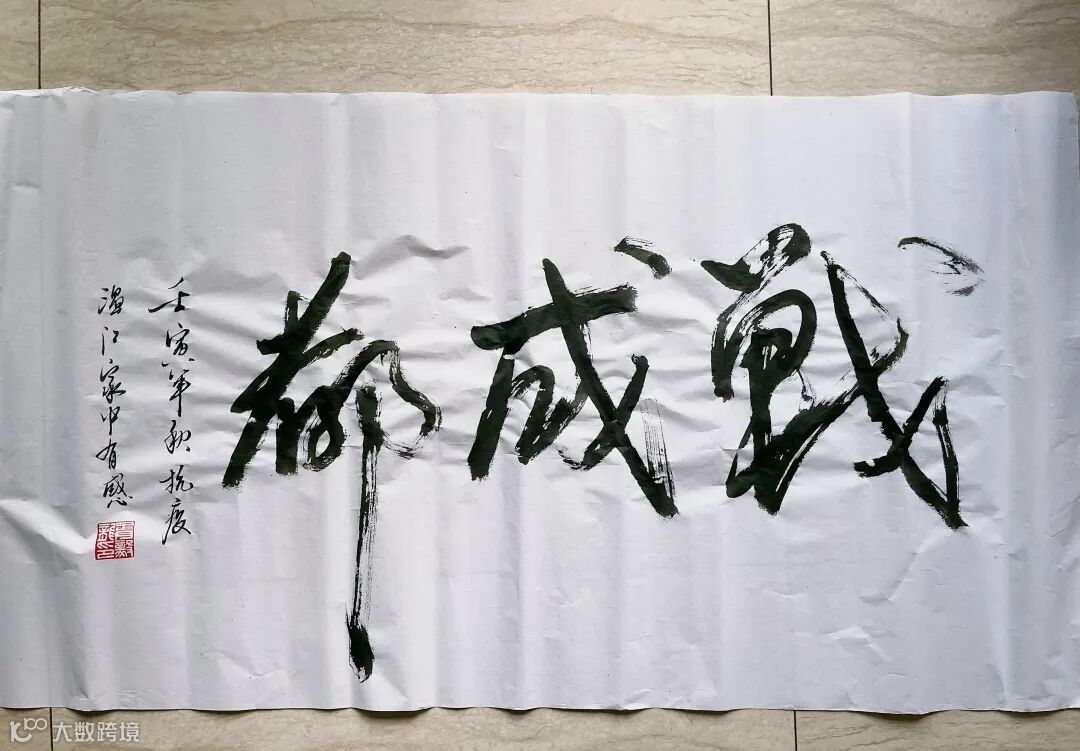 戰成都
壬寅年秋抗疫
温江家中有感
大数跨境